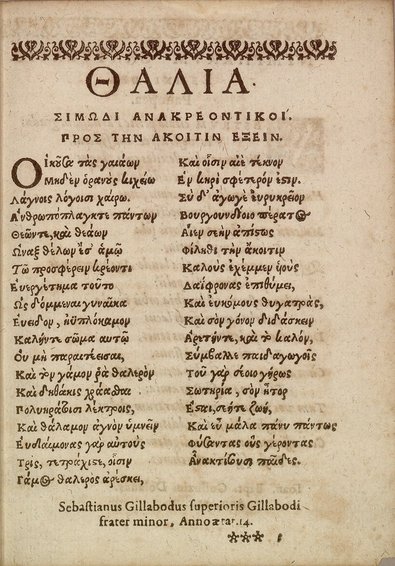 ΘΑΛΙΑ.
ΣΙΜΩΔΙ ΑΝΑΚΡΕΟΝΤΙΚΟΙ,
ΠΡΟΣ ΤΗΝ ΑΚΟΙΤΙΝ ΕΞΕΙΝ.
τὰς γαμάων
Μηδὲν κιχείω
Λάγνοις λόγοισι χαίρω.
Ἀνθρωποπλαγκτε πάντων
Θεῶντε, καὶ θεάων
θέλων ἐσ' ἀμῷ
Τῷ προσφέρειν κρέοντι
Εὐεργέτημα τοῦτο
Ὡς
Ευειδον, ἠϋπλόκαμον
Καλήντε σῶμα αυτῷ
Οὐ μὴ παραιτέεισαι,
Καὶ τὸν γάμον ῥα θαλερὸν
Καὶ δηθάκις
λέκτροις,
Καὶ θάλαμον ἁγνὸν ὑμνεῖν
Ευδαίμονας γαρ αὐτοὺς
Τρὶς, τετράκιστε, οἷσιν
Γάμος θαλερὸς ἀρέσκει,
Καὶ οἷσιν αἰὲ τέκνον
Ἐν κῆρι σφέτερόν ἐστιν.
Σὺ δ' ἄγωγε εὐρυκρεῖον
Βουργουνδίοιο πέρατος
Αἰὲν σεὴν ἄπιστως
Φίληθι τὴν ἄκοιτιν
Καλοὺς ἐχέμμεν ὑιοὺς
Δαίφρονας ἐπιθύμει,
Καὶ ευκόμους θυγατρὰς,
Καὶ σὸν γόνον διδάσκειν
Ἀρετήντε, καὶ τὸ καλὸν,
Σύμβαλλε παιδαγωγοῖς
Τοῦ γαρ σεῖοιο γήρως
Σωτηρία, σὸν ἦτορ
ζωή,
Καὶ εὖ μάλα πάνυ πάντως
οὓς γέροντας
παῖδες.
Sebastianus Gillabodus superioris Gillabodi
frater minor, Anno ætat. 14.
***